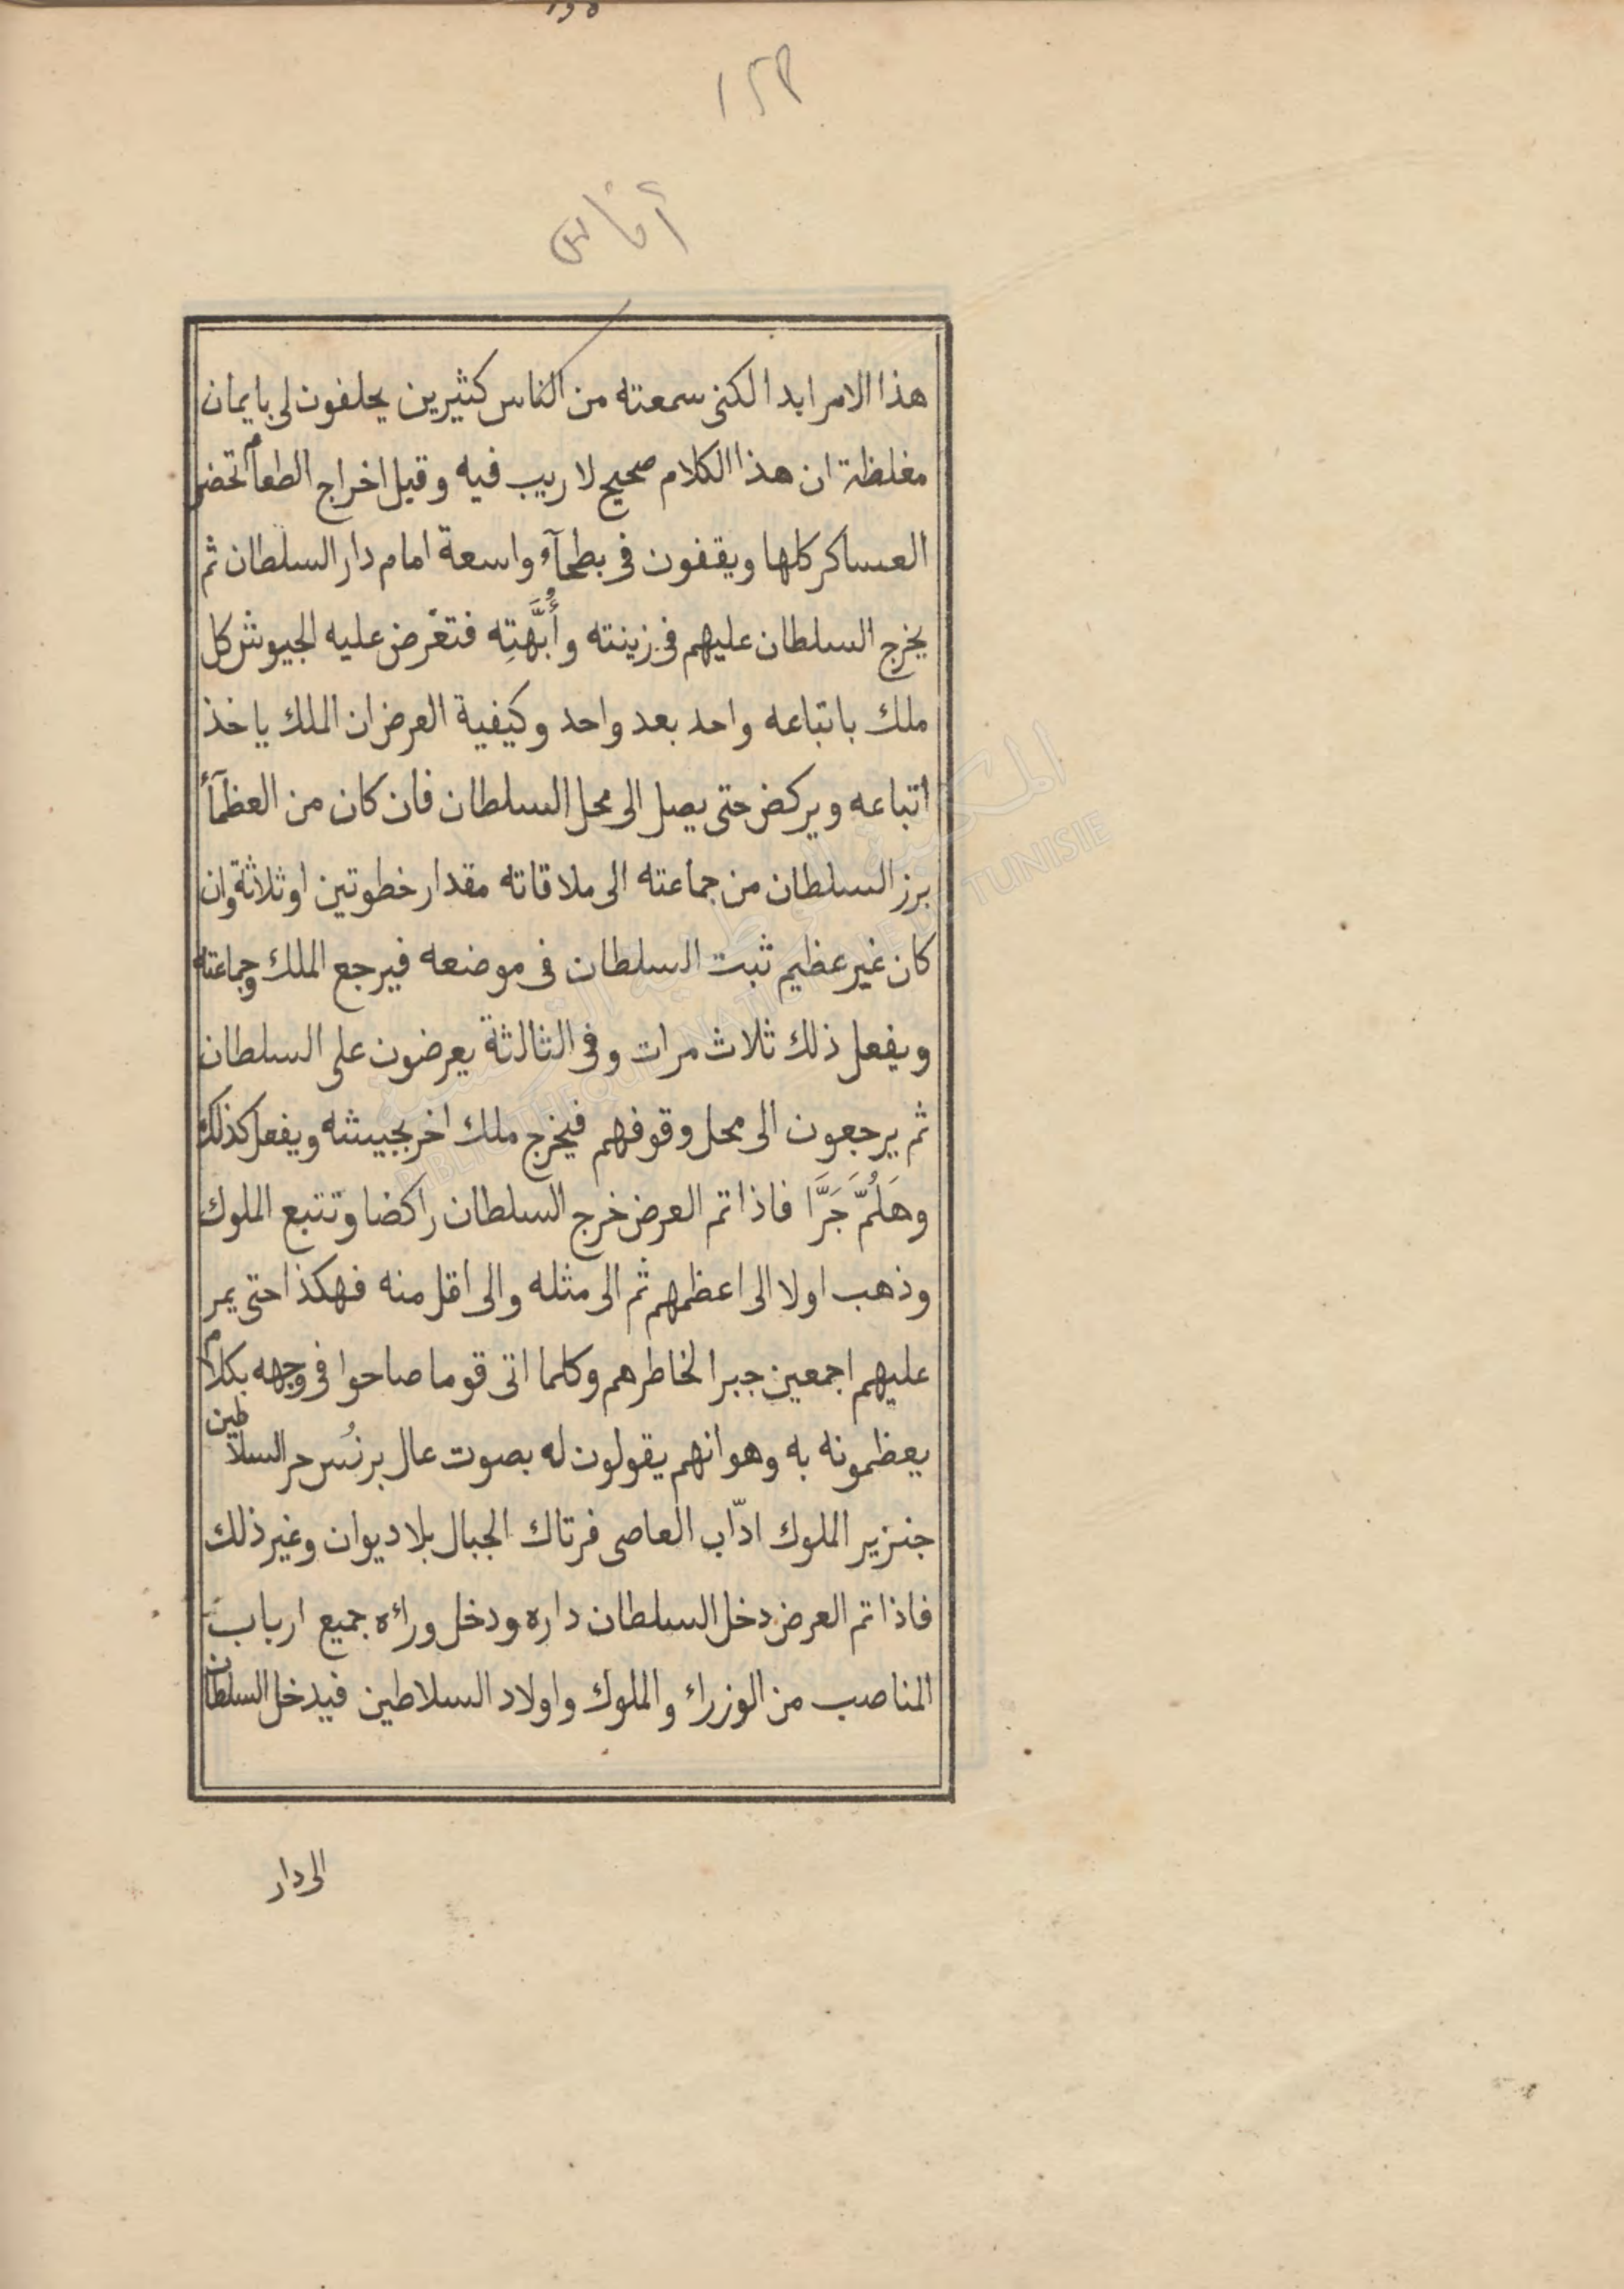 ١٤٩
أناس
هذا الامر ابدا لكنى سمعته من الناس كثيرين يحلفون لى بايمان
مغلظة ان هذا الكلام صحيح لا ريب فيه وقبل اخراج الطعام تحضر
العساكر كلها ويقفون فى بطحآء واسعة امام دار السلطان ثم
يخرج السلطان عليهم فى زينته وأُبَّهَتِه فتعرض عليه الجيوش كل
ملك باتباعه واحد بعد واحد وكيفية العرض ان الملك ياخذ
اتباعه ويركض حتى يصل الى محل السلطان فان كان من العظمآء
برز السلطان من جماعته الى ملاقاته مقدار خطوتين او ثلاثة وان
كان غير عظيم ثبت السلطان فى موضعه فيرجع الملك وجماعته
ويفعل ذلك ثلاث مرات وفى الثالثة يعرضون على السلطان
ثم يرجعون الى محل وقوفهم فيخرج ملك اخر بجيشه ويفعل كذلك
وهَلُمَّ جَرَّا فاذا تم العرض خرج السلطان راكضا وتتبع الملوك
وذهب اولا الى اعظمهم ثم الى مثله والى اقل منه فهكذا حتى يمر
عليهم اجمعين جبرا لخاطرهم وكلما اتى قوما صاحوا فى وجهه بكلام
يعظمونه به وهو انهم يقولون له بصوت عال برنُس حر السلاطين
جنزير الملوك ادّاب العاصى فرتاك الجبال بلا ديوان وغير ذلك
فاذا تم العرض دخل السلطان داره ودخل وراءه جميع ارباب
المناصب من الوزراء والملوك واولاد السلاطين فيدخل السلطان
الى دار